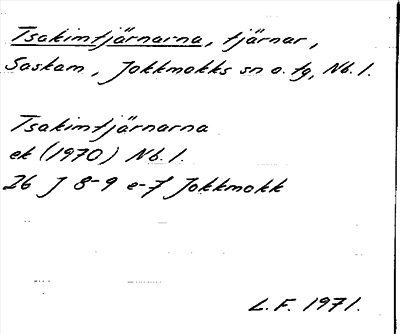 Tsakimtjärnarna, tjärnar,
Saskam, Jokkmokks sn o. tg, Nb. l.
Tsakimtjärnarna
ek (1970) Nb. l.
26 J 8-9 e-f Jokkmokk
L. F. 1971.